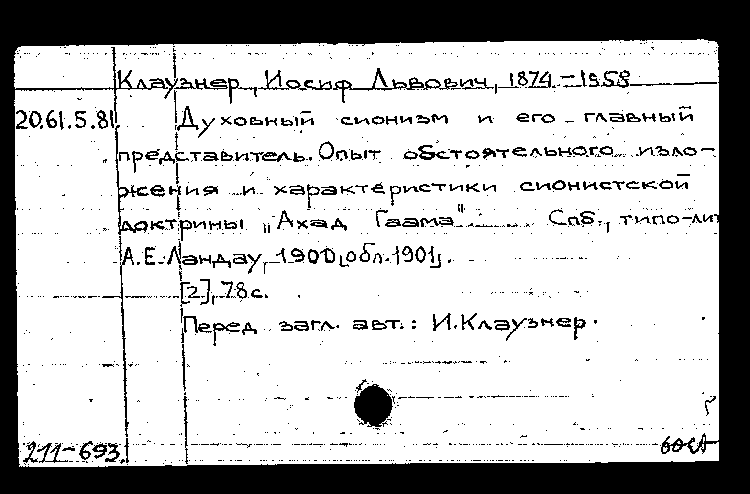 Клаузнер, Иосиф Львович, 1874-1958
20.61.5.81. Духовный сионизм и его главный
представитель. Опыт обстоятельного изло-
жения и характеристики сионистской
доктрины „Ахад Гаама" Спб., типо-лит
А.Е. Ландау, 1900[обл.1901].
[2], 78 с.
Перед загл. авт.: И.Клаузнер.
211-693.